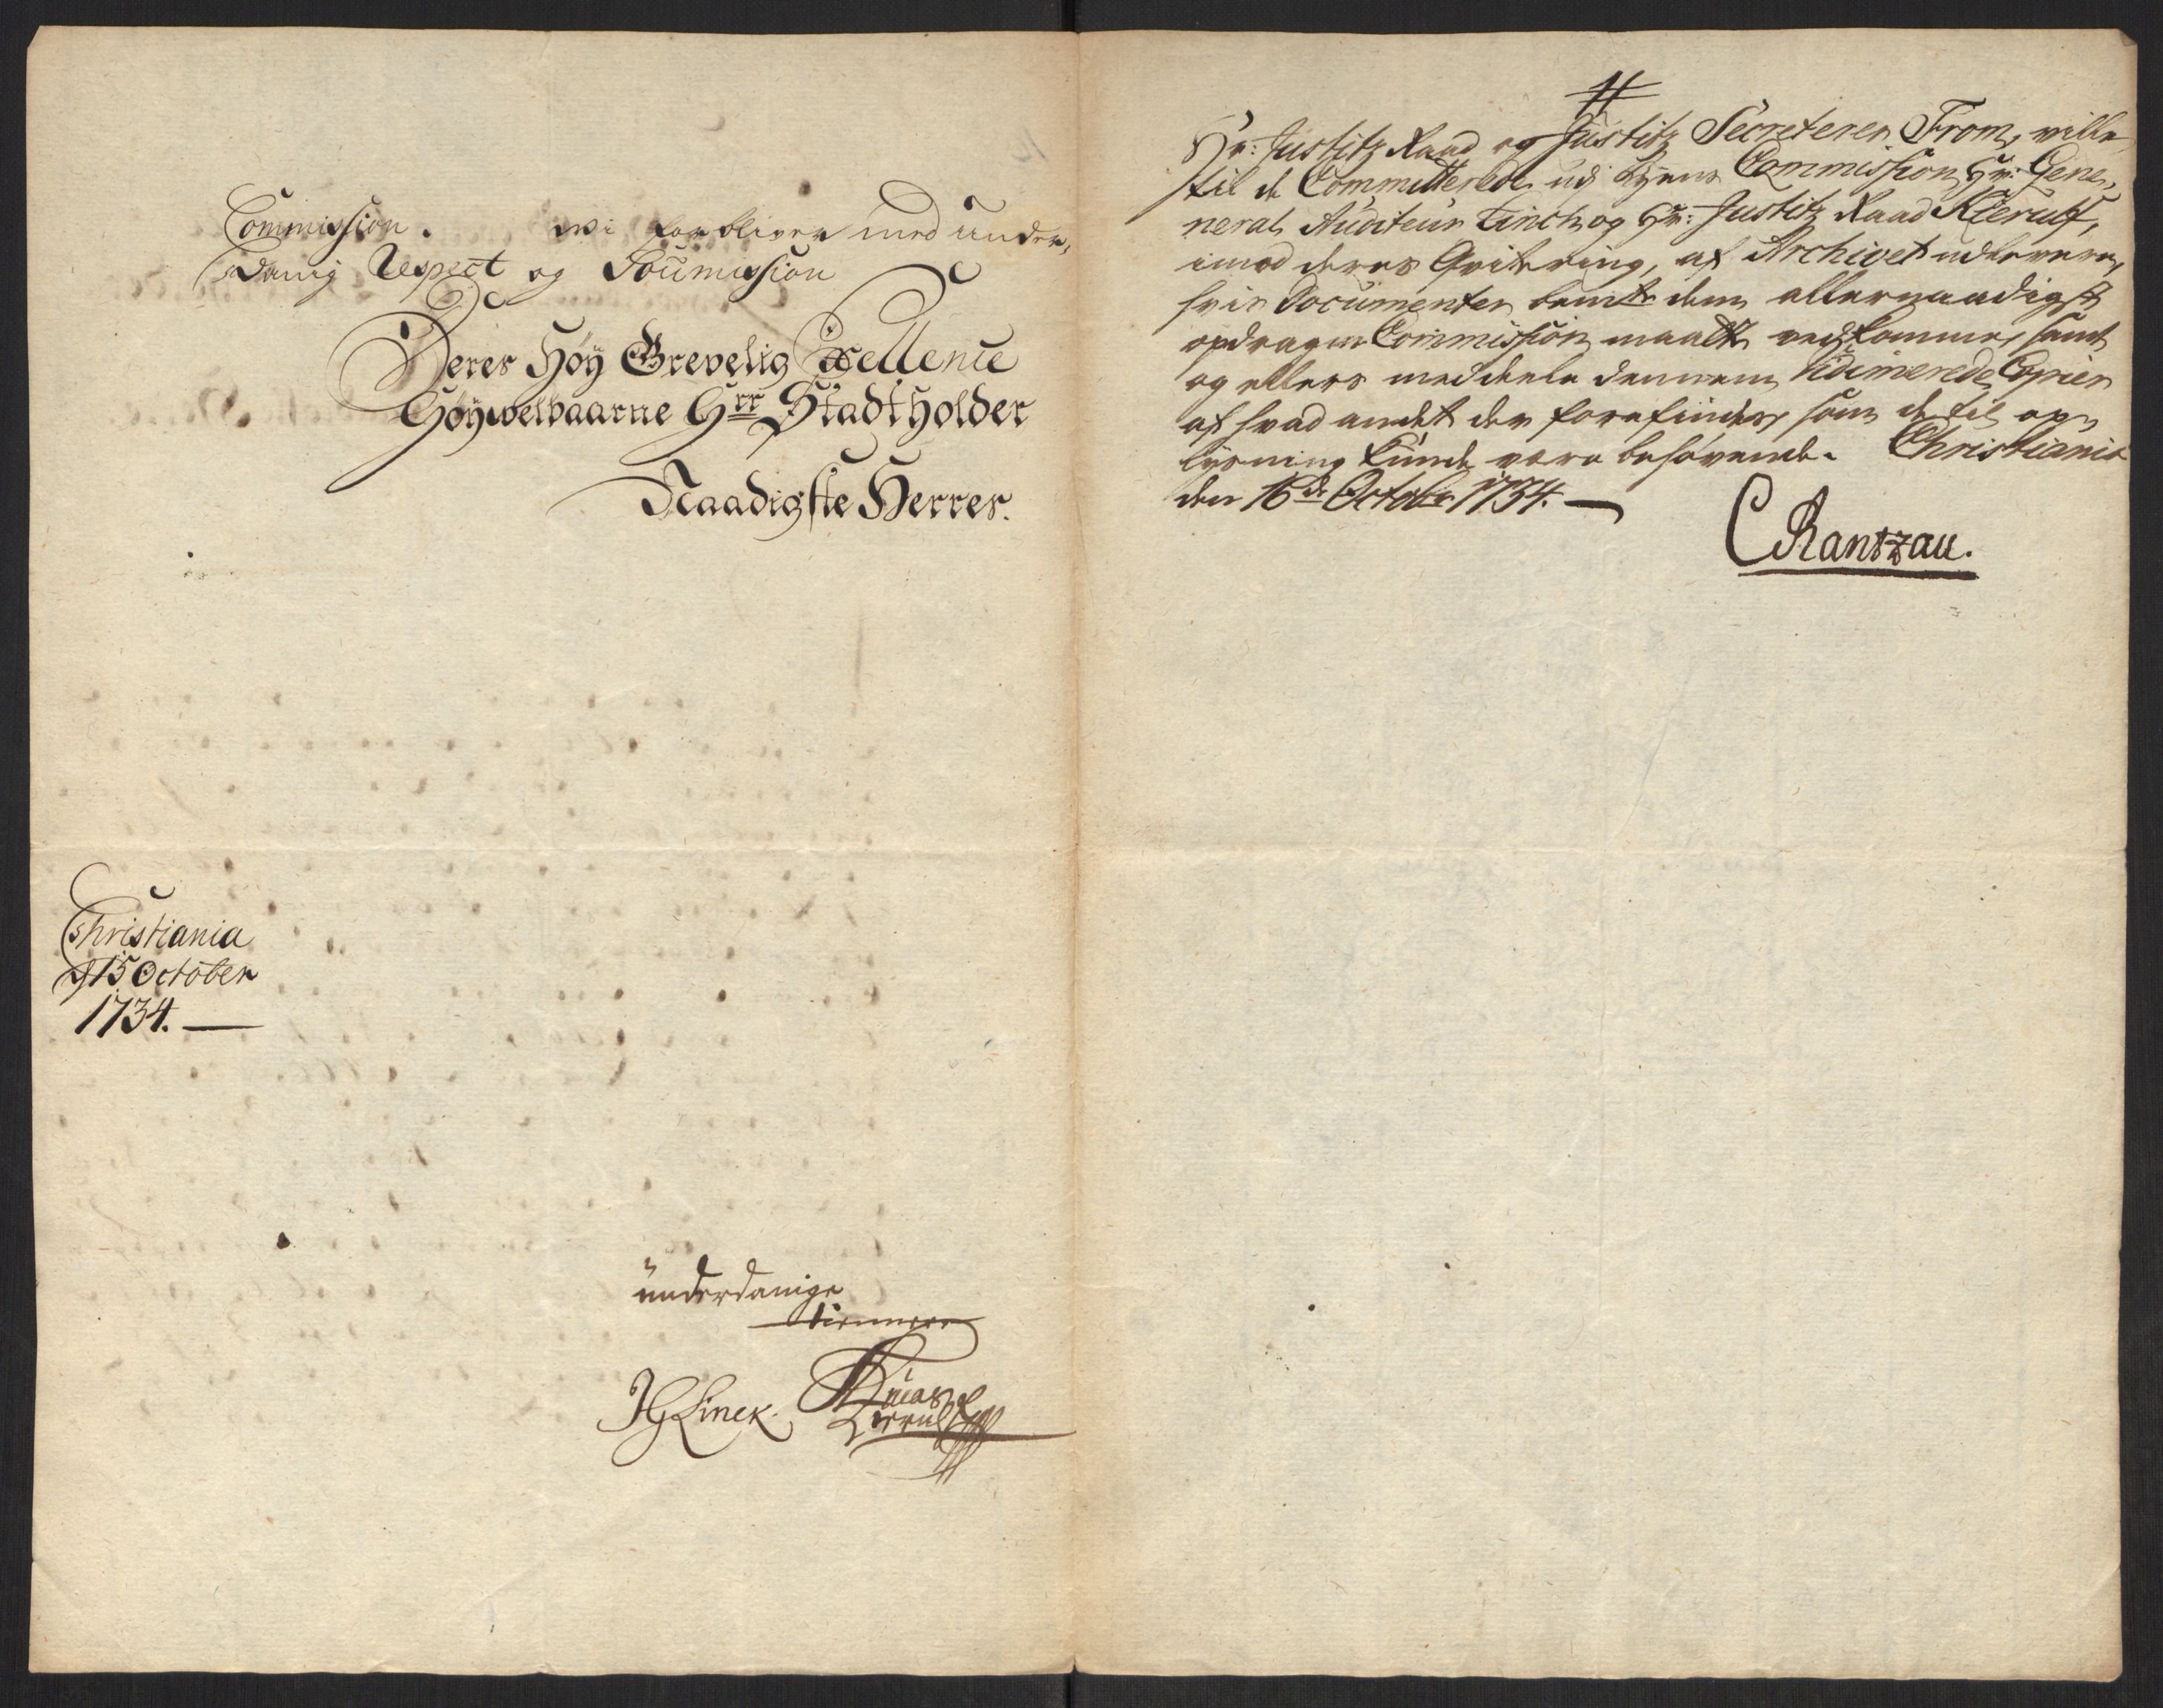 Commission. Wi forbliver med under,
danig Respect og Soumission
Deres Höÿ Grevelig Excellence
Höÿwelbaarne Hrr Stadtholder
Naadigste Herres.
Christiania
d 15 October
1734.
underdanige
tienere
HG Linck. Lucas Kierulf
#
Hr: Justitz Raad og Justitz Secreterer From, wille
til de Committerede udj Commission, Hr: Gene,,
neral Auditeur Linck og Hr: Justitz Raad Kierulf,
imod deres Qvitering, af Archivet udlevere,
hvis Documenter bemte dem allernaadigst
opdragne Commission maatte vedkomme, samt
og ellers meddeele dennem Vidimerede Copier
af hvad andet der forefindes, som de til op,,
lysning kunde være behøvende. Christiania
den 16de Octobr 1734.
C Rantzau.